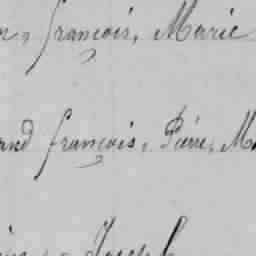 françois, Marie
and françois, Pierre, M
Joseph